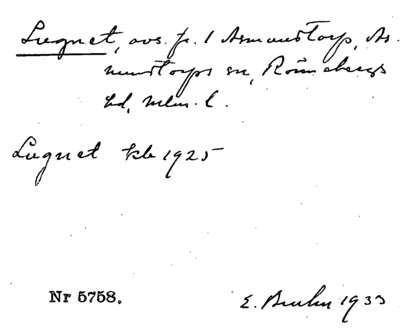 Lugnet, avs. fr. 1 Asmundtorp, As-
mundtorps sn, Rönnebergs
hd, Mlm. l.
Lugnet kb 1925
Nr 5758.
E. 1933